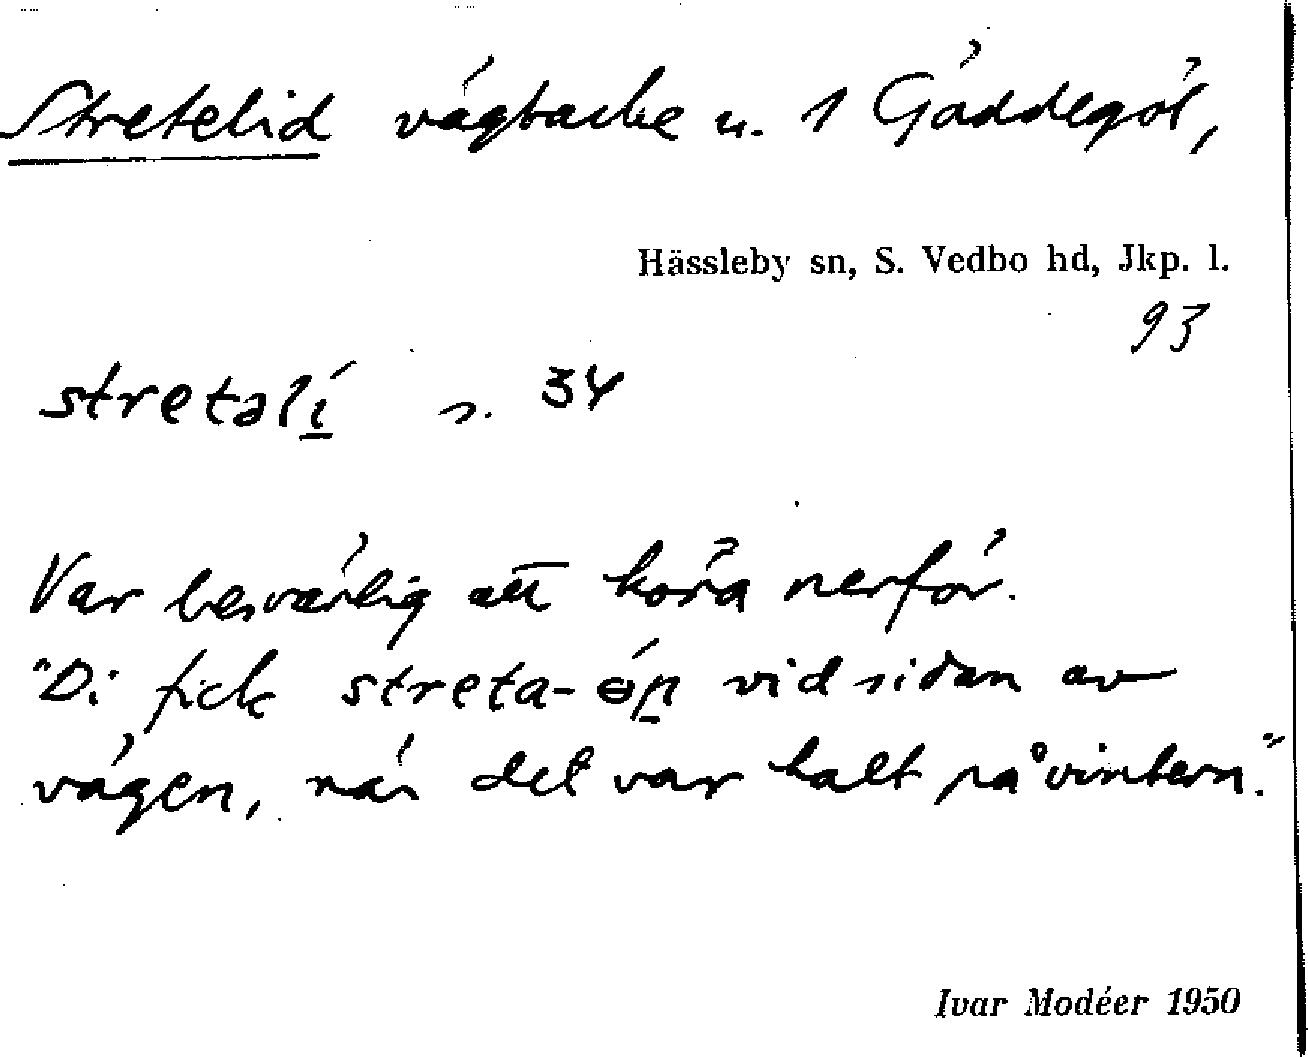 Stretelid vägbacke u. 1 Gäddegöl,
Hässleby sn, S. Vedbo hd, Jkp. l.
93
stretəlí s. 34
Var besvärlig att köra nerför.
"Di fick streta-öp vid sidan av
vägen, när det var halt på vintern."
Ivar Modéer 1950